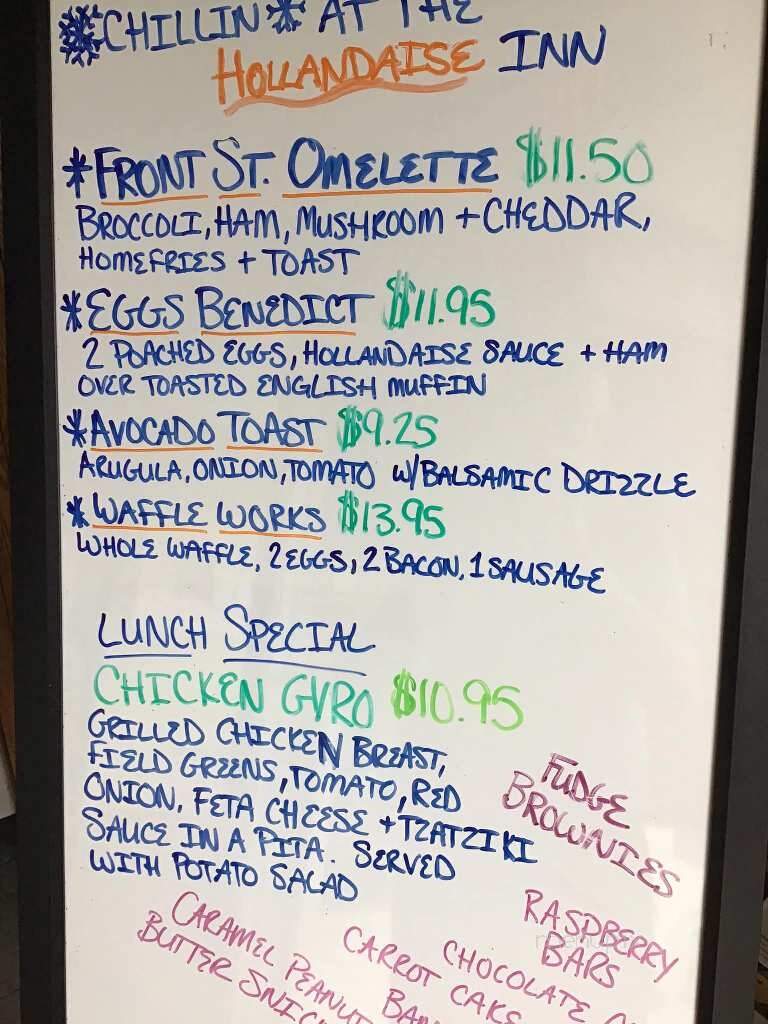 CHILLIN AT THE
HOLLANDAISE INN
*FRONT ST. OMELETTE $11.50
BROCCOLI, HAM, MUSHROOM + CHEDDAR,
HOMEFRIES + TOAST
*EGGS BENEDICT $11.95
2 POACHED EGGS, HOLLANDAISE SAUCE + HAM
OVER TOASTED ENGLISH MUFFIN
*AVOCADO TOAST $9.25
ARUGULA, ONION, TOMATO W/BALSAMIC DRIZZLE
*WAFFLE WORKS $13.95
WHOLE WAFFLE, 2 EGGS, 2 BACON, 1 SAUSAGE
LUNCH SPECIAL
CHICKEN GYRO $10.95
GRILLED CHICKEN BREAST,
FIELD GREENS, TOMATO, RED
ONION, FETA CHEESE + TZATZIKI
SAUCE IN A PITA. SERVED
WITH POTATO SALAD
FUDGE
BROWNIES
RASPBERRY
BARS
CHOCOLATE
CARROT CAKE
CARAMEL PEANUT
BUTTER